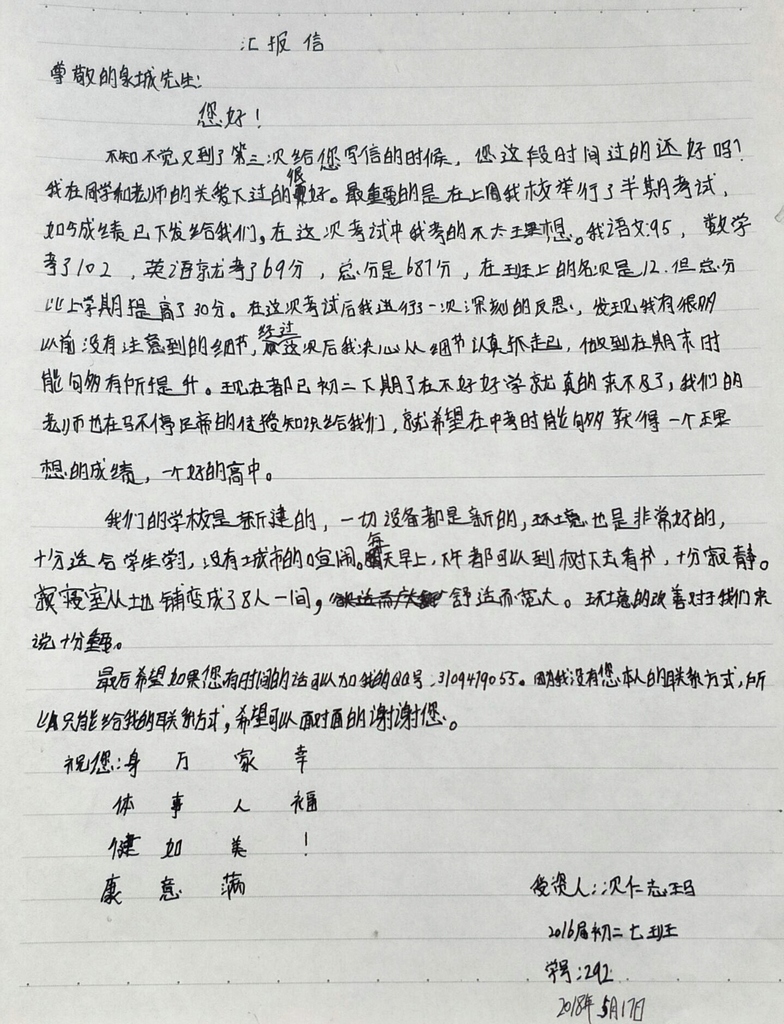 汇报信
尊敬的泉城先生:
您好!
不知不觉又到了第三次给您写信的时候,您这段时间过的还好吗?
我在同学和老师的关爱下过的很好。最重要的是在上周我校举行了半期考试,
如今成绩已下发给我们。在这次考试中我考的不太理想。我语文95,数学
考了102,英语就考了69分,总分是687分,在班上的名次是12.但总分
比上学期提高了30分。在这次考试后我进行了一次深刻的反思,发现我有很多
以前没有注意到的细节,经过这次后我决心从细节认真抓走已,做到在期末时
能够有所提升。现在都已初二下期了在不好好学就真的来不及了,我们的
老师也在马不停足帝的传授知识给我们,就希望在中考时能够获得一个理
想的成绩,一个好的高中。
我们的学校是新建的,一切设备都是新的,环境也是非常好的,
十分适合学生学习,没有城市的喧闹。每天早上,下午都可以到树下去看书,十分寂静。
寝室从土地铺变成了8人一间,舒适而宽大。环境的改善对于我们来
说十分重要。
最后希望如果您有时间的话可以加我的QQ号:3109479055。因为我没有您本人的联系方式,所
以只能给我的联系方式,希望可以面对面的谢谢您。
祝您:身 万 家 幸
体 事 人 福
健 如 美 !
康 意 满
受资人:次仁志玛
2016届初二七班
学号:292
2018年5月17日